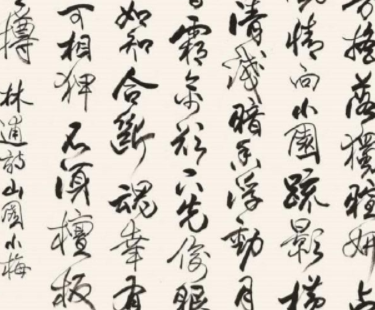 芳搖落獨暄妍占
情向小園疏影橫
清淺暗香浮動月
霜禽欲下先偷眼
如知合斷魂幸有
可相狎不須檀板
樽 林逋詩山園小梅